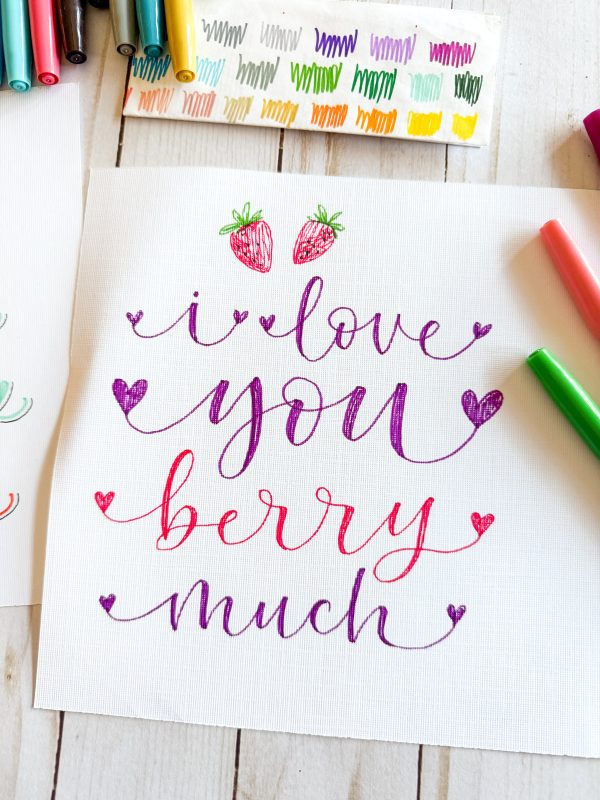 i love
you
berry
much